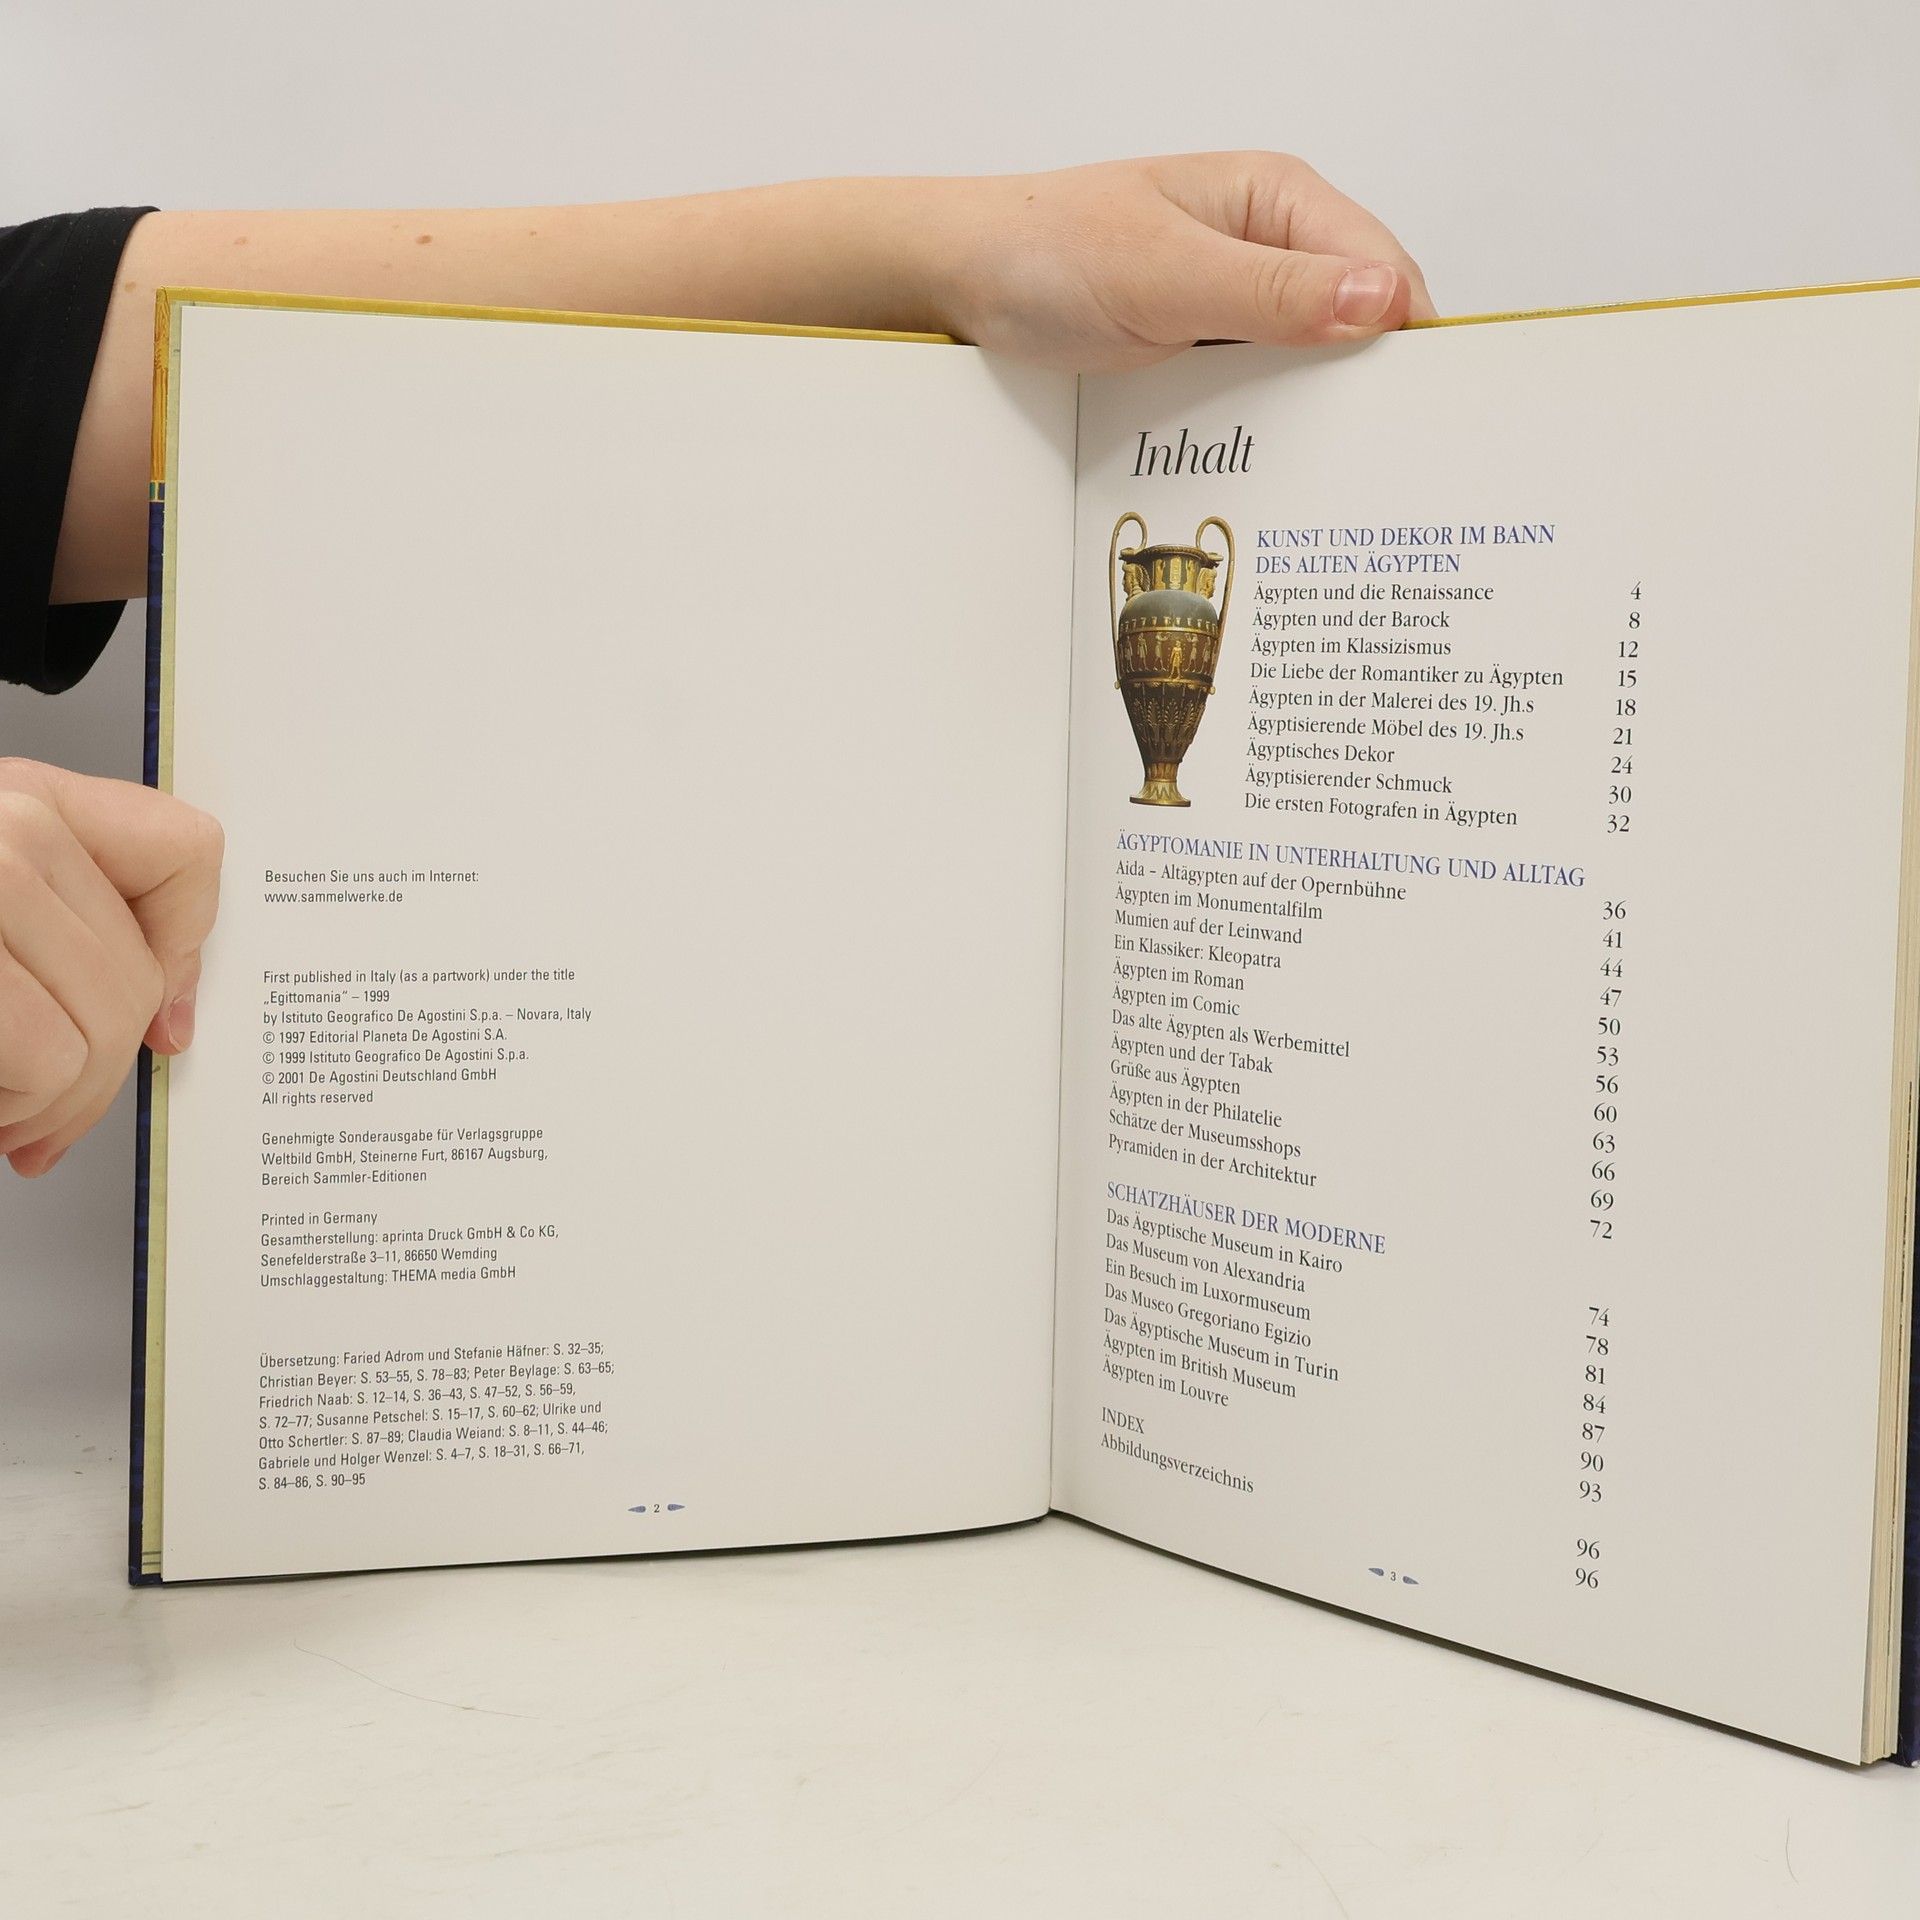 Besuchen Sie uns auch im Internet:
www.sammelwerke.de
First published in Italy (as a partwork) under the title
„Egittomania“ – 1999
by Istituto Geografico De Agostini S.p.a. – Novara, Italy
© 1997 Editorial Planeta De Agostini S.A.
© 1999 Istituto Geografico De Agostini S.p.a.
© 2001 De Agostini Deutschland GmbH
All rights reserved
Genehmigte Sonderausgabe für Verlagsgruppe
Weltbild GmbH, Steinerne Furt, 86167 Augsburg,
Bereich Sammler-Editionen
Printed in Germany
Gesamtherstellung: aprinta Druck GmbH & Co KG,
Senefelderstraße 3–11, 86650 Wemding
Umschlaggestaltung: THEMA media GmbH
Übersetzung: Faried Adrom und Stefanie Häfner: S. 32–35;
Christian Beyer: S. 53–55, S. 78–83; Peter Beylage: S. 63–65;
Friedrich Naab: S. 12–14, S. 36–43, S. 47–52, S. 56–59,
S. 72–77; Susanne Petschel: S. 15–17, S. 60–62; Ulrike und
Otto Schertler: S. 87–89; Claudia Weiand: S. 8–11, S. 44–46;
Gabriele und Holger Wenzel: S. 4–7, S. 18–31, S. 66–71,
S. 84–86, S. 90–95
2
Inhalt
KUNST UND DEKOR IM BANN
DES ALTEN ÄGYPTEN
Ägypten und die Renaissance 4
Ägypten und der Barock 8
Ägypten im Klassizismus 12
Die Liebe der Romantiker zu Ägypten 15
Ägypten in der Malerei des 19. Jh.s 18
Ägyptisierende Möbel des 19. Jh.s 21
Ägyptisches Dekor 24
Ägyptisierender Schmuck 30
Die ersten Fotografen in Ägypten 32
ÄGYPTOMANIE IN UNTERHALTUNG UND ALLTAG
Aida – Altägypten auf der Opernbühne 36
Ägypten im Monumentalfilm 41
Mumien auf der Leinwand 44
Ein Klassiker: Kleopatra 47
Ägypten im Roman 50
Ägypten im Comic 53
Das alte Ägypten als Werbemittel 56
Ägypten und der Tabak 60
Grüße aus Ägypten 63
Ägypten in der Philatelie 66
Schätze der Museumsshops 69
Pyramiden in der Architektur 72
SCHATZHÄUSER DER MODERNE
Das Ägyptische Museum in Kairo 74
Das Museum von Alexandria 78
Ein Besuch im Luxormuseum 81
Das Museo Gregoriano Egizio 84
Das Ägyptische Museum in Turin 87
Ägypten im British Museum 90
Ägypten im Louvre 93
INDEX 96
Abbildungsverzeichnis 96
3